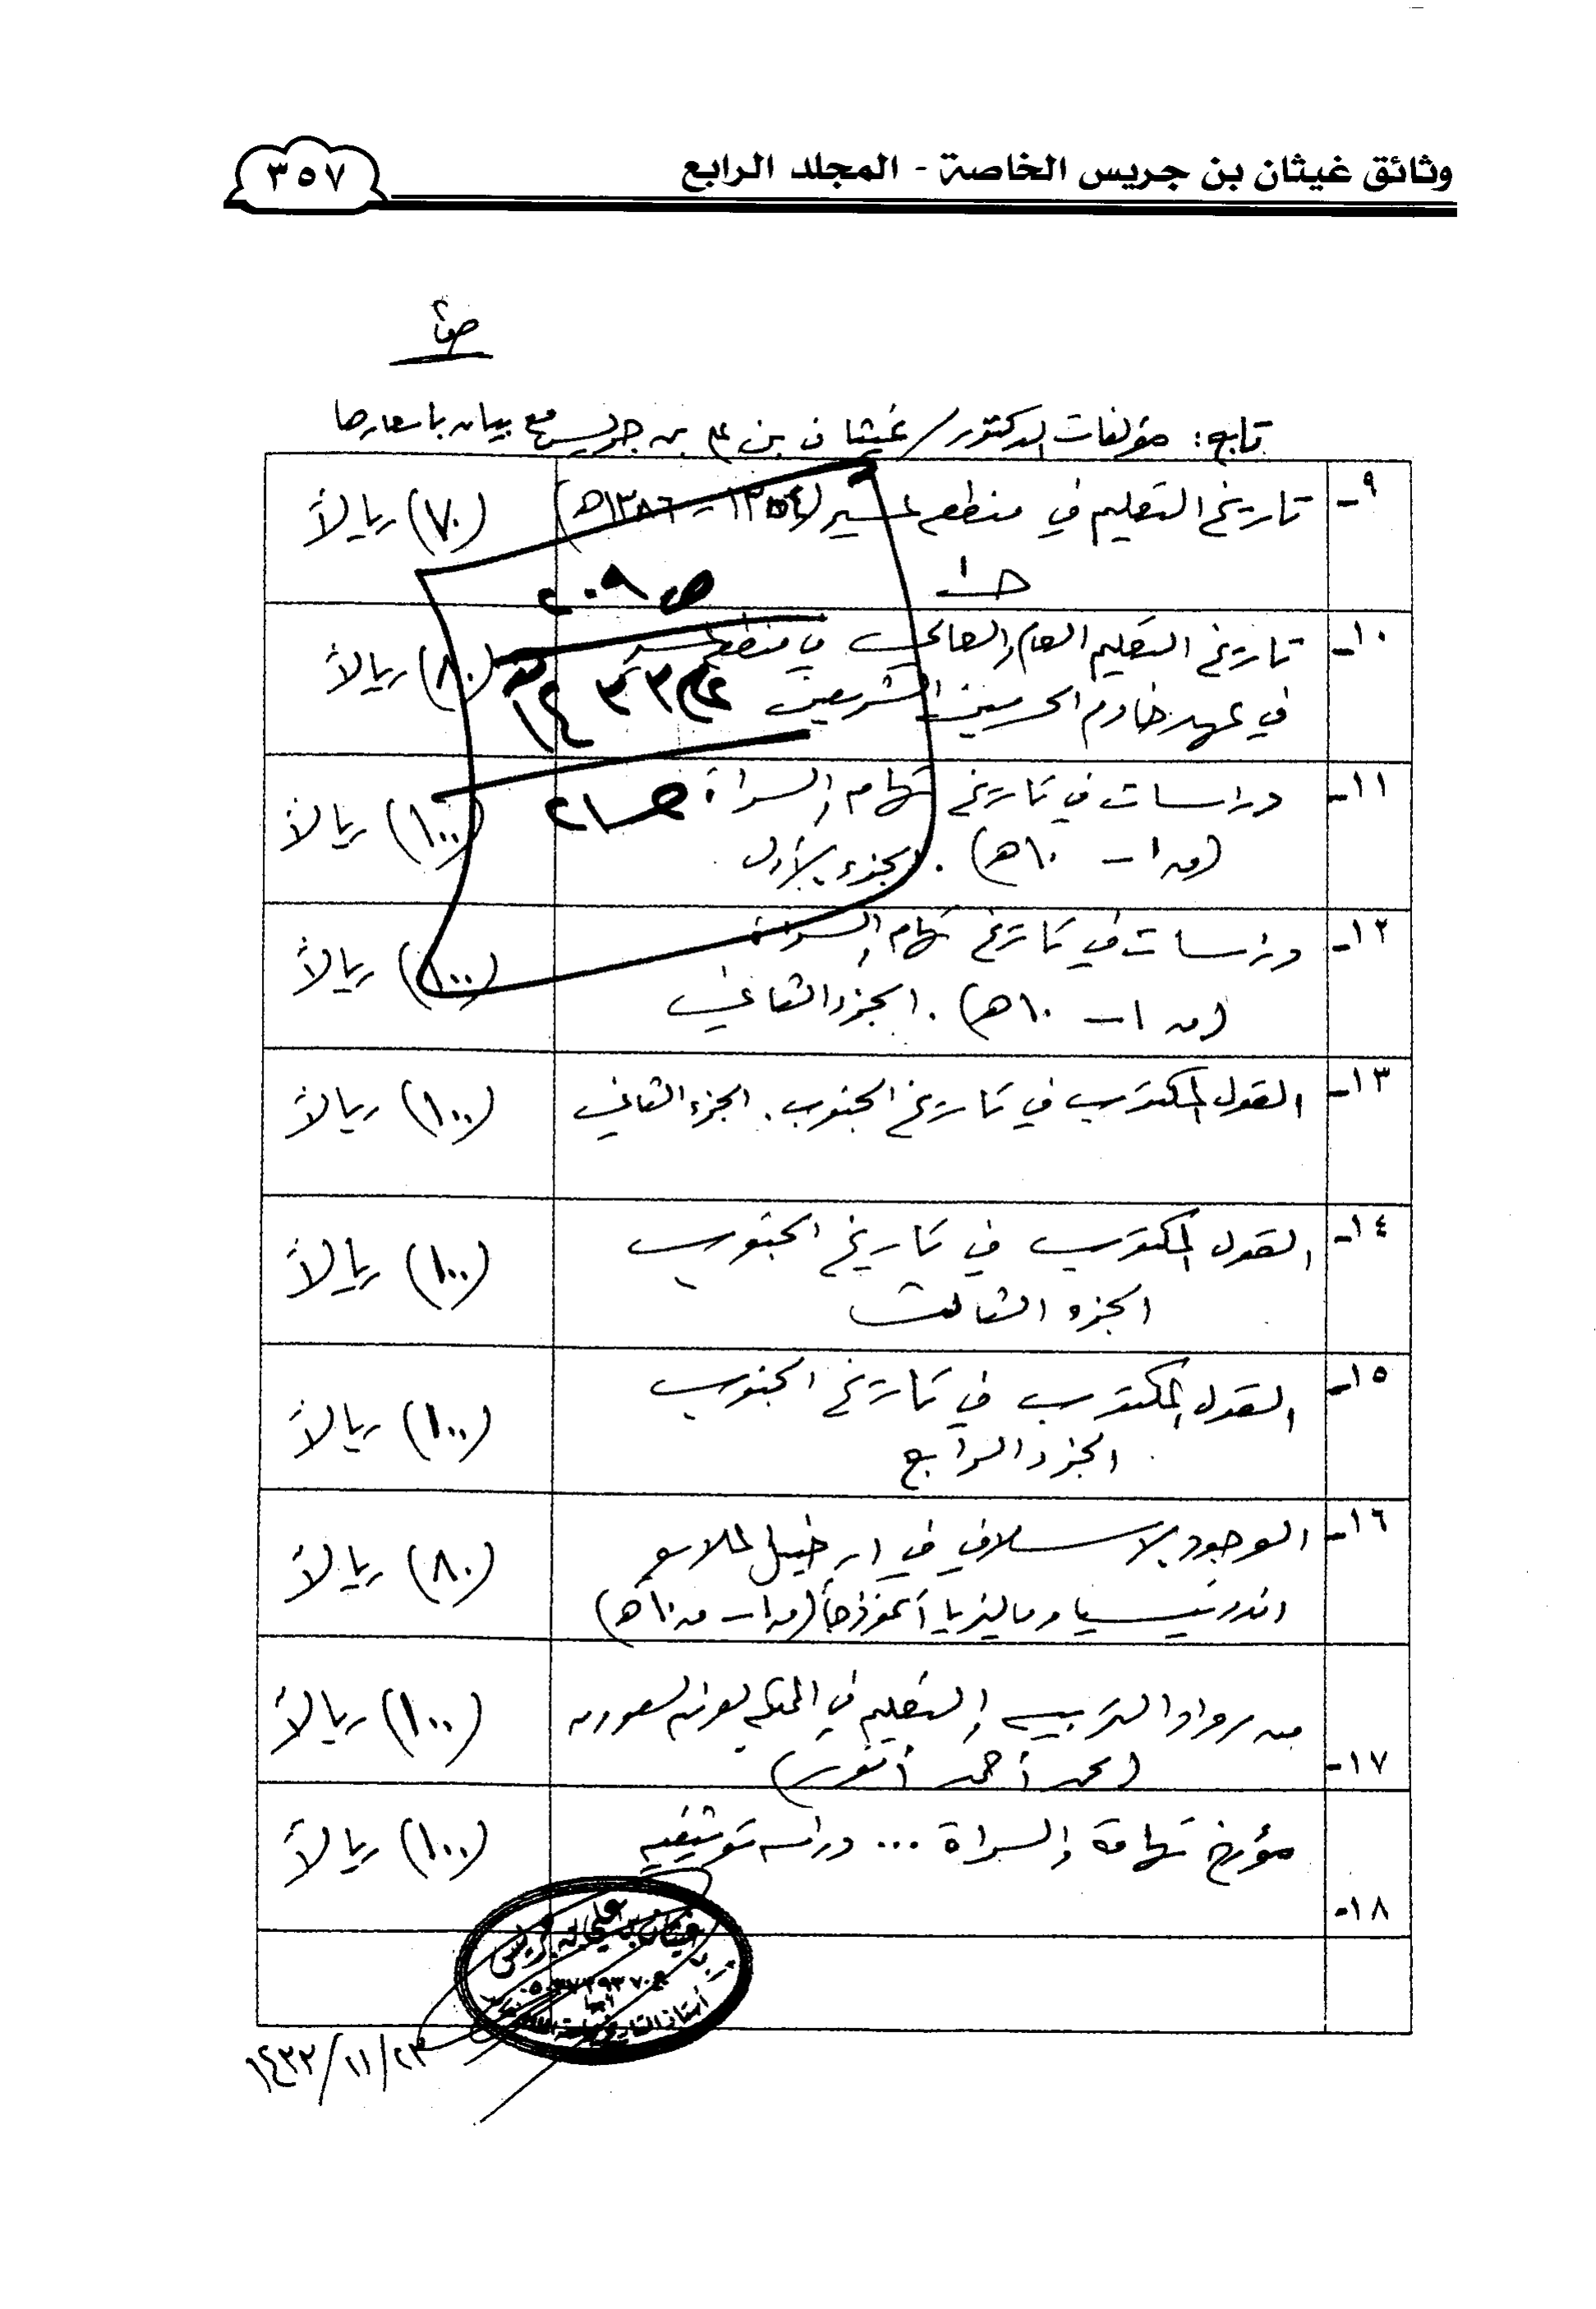 وثائق غيثان بن جريس الخاصة - المجلد الرابع
٣٥٧
ص٢
تابع: مؤلفات الدكتور/ غيثان بن علي بن جريس مع بيان بأسعارها
٩- تاريخ التعليم في منطقة عسير (١٣٥٤ - ١٣٨٦هـ) (٧٠) ريالاً
جـ١
١٠- تاريخ التعليم العام والعالي في منطقة عسير (٨٠) ريالاً
في عهد خادم الحرمين الشريفين
ص ٢٠٩
١٤٣٣
١١- دراسات في تاريخ تهامة والسراة (١٠٠) ريالاً
(ق ١ - ١٠هـ). الجزء الأول
١٢- دراسات في تاريخ تهامة والسراة (١٠٠) ريالاً
(ق ١ - ١٠هـ). الجزء الثاني
١٣- القول المكتوب في تاريخ الجنوب. الجزء الثاني (١٠٠) ريالاً
١٤- القول المكتوب في تاريخ الجنوب (١٠٠) ريالاً
الجزء الثالث
١٥- القول المكتوب في تاريخ الجنوب (١٠٠) ريالاً
الجزء الرابع
١٦- الوجود الإسلامي في أرخبيل الملايو (٨٠) ريالاً
اندونيسيا وماليزيا أنموذجاً (ق١ - ق١٠هـ)
١٧- من رواد التربية والتعليم في المملكة العربية السعودية (١٠٠) ريالاً
(محمد أحمد أنور)
١٨- مؤرخ تهامة والسراة ... دراسة توثيقية (١٠٠) ريالاً
غيثان بن علي بن جريس
أبها
أستاذ التاريخ
١٤٣٣/١١/٢٣